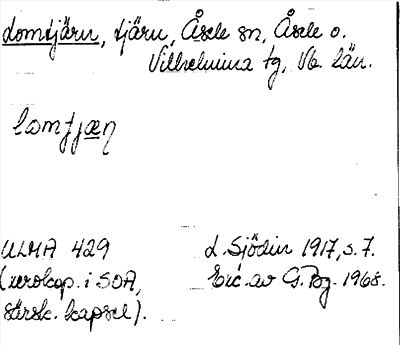 Lomtjärn, tjärn, Åsele sn, Åsele o.
Vilhelmina tg, Vb. län.
lomtjæɳ
ULMA 429
(xerokop. i SOA,
särsk. kapsel).
L. Sjödin 1917, s. 7.
Exc. av G. Bg. 1968.